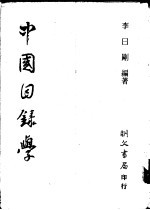 李曰剛編著
中國目錄學
明文書局印行